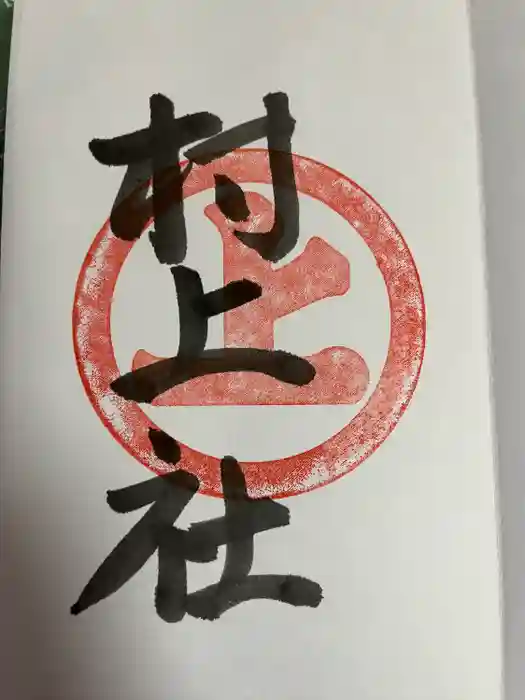 村上社
上